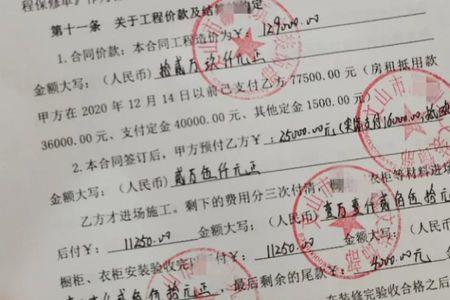 程保修单》作为
第十一条 关于工程价款及结 定
1.合同价款：本合同工程造价为￥：129000.00
金额大写：（人民币）拾贰万玖仟元正
甲方在 2020 年 12 月 14 日以前已支付乙方 77500.00 元（房租抵用款
36000.00 元、支付定金 40000.00 元、其他定金 1500.00 元）
2.本合同签订后，甲方预付乙方￥：25000.00元(实际支付16000.00
金额大写：（人民币）贰万伍仟元正
乙方才进场施工。剩下的费用分三次付清， 衣柜等材料进场
后付￥： 11250.00 金额大写：（人民币）壹万壹仟贰佰伍拾元
橱柜、衣柜安装验收完 ￥： 11250.00 金额大写：
贰佰伍拾元正 ，最后剩余的尾款 4000.00
装修完验收合格之后